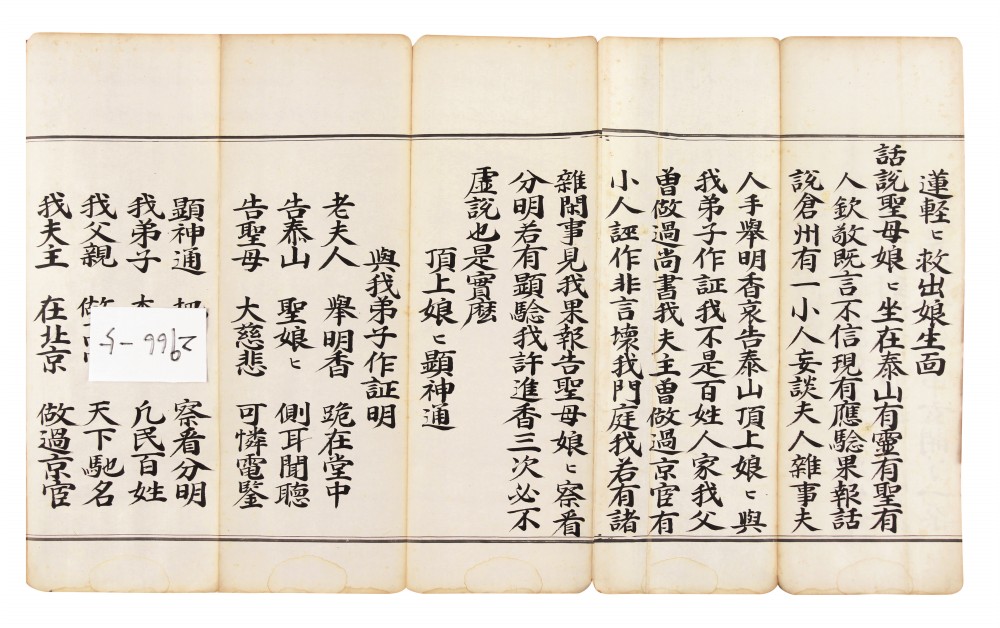 蓮軽〻救出娘生面
話說聖母娘〻坐在泰山有靈有聖有
人欽敬既言不信現有應驗果報話
說倉州有一小人妄談夫人雜事夫
人手舉明香哀告泰山頂上娘〻與
我弟子作証我不是百姓人家我父
曾做過尚書我夫主曾做過京官有
小人誣作非言壞我門庭我若有諸
雜閑事見我果報告聖母娘〻察看
分明若有顯驗我許進香三次必不
虛說也是實麽
頂上娘〻顯神通
與我弟子作証明
老夫人 舉明香 跪在堂中
告泰山 聖娘〻 側耳聞聽
告聖母 大慈悲 可憐電鑒
顯神通 察看分明
我弟子 凢民百姓
我父親 做 天下馳名
我夫主 在北京 做過京官